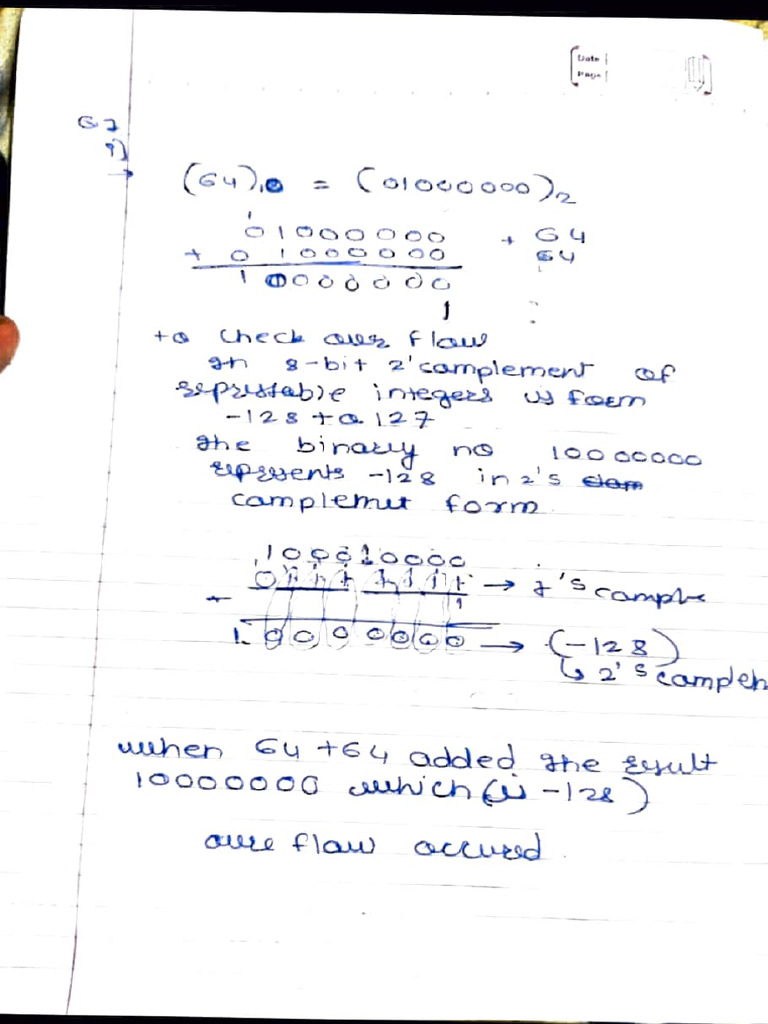 Date
Page
G7
i)
→ (64)10 = (01000000)2
1
01000000 + 64
+ 01000000 64
10000000
1 :
to check over flow
In 8-bit 2'complement of
integers is form
-128 to 127
the binary no 10000000
represents -128 in 2's
complemut form
10000000
01111111 → 1's comple
+ 1
10000000 → (-128)
↳ 2's complem
when 64+64 added the result
10000000 which (is -128)
over flow occured.